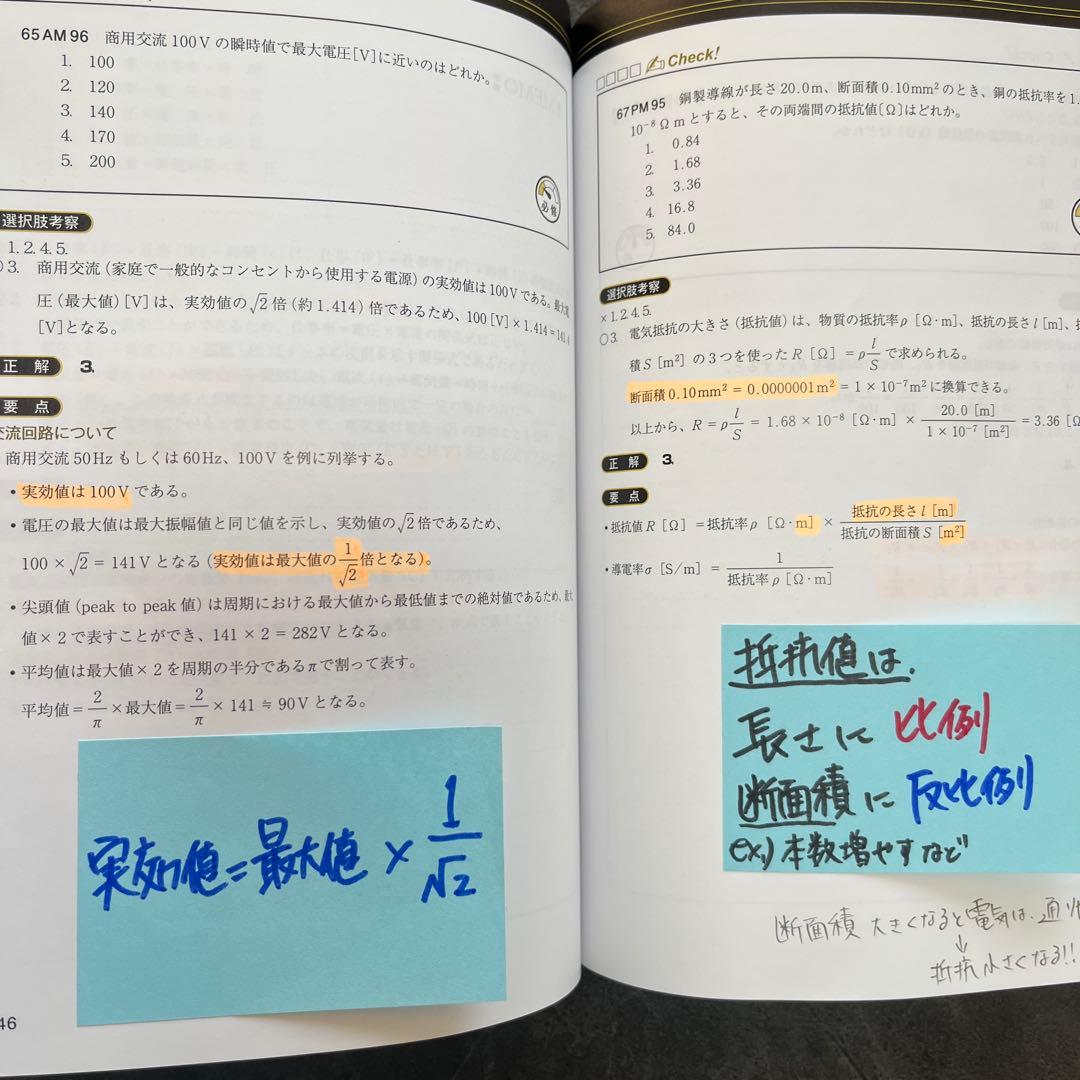 65 AM 96 商用交流 100 V の瞬時値で最大電圧[V]に近いのはどれか。
1. 100
2. 120
3. 140
4. 170
5. 200
必修
選択肢考察
1. 2. 4. 5.
○3. 商用交流（家庭で一般的なコンセントから使用する電源）の実効値は 100 V である。最大電
圧（最大値）[V] は、実効値の√2 倍（約 1.414）倍であるため、100 [V] × 1.414 = 141.4
[V]となる。
正解 3.
要点
交流回路について
商用交流 50 Hz もしくは 60 Hz、100 V を例に列挙する。
・実効値は 100 V である。
・電圧の最大値は最大振幅値と同じ値を示し、実効値の√2 倍であるため、
100 × √2 = 141 V となる（実効値は最大値の 1/√2 倍となる）。
・尖頭値 (peak to peak 値) は周期における最大値から最低値までの絶対値であるため、最大
値 × 2 で表すことができ、141 × 2 = 282 V となる。
・平均値は最大値 × 2 を周期の半分であるπで割って表す。
平均値 = 2/π × 最大値 = 2/π × 141 ≒ 90 V となる。
実効値 = 最大値 × 1/√2
46
Check!
67 PM 95 銅製導線が長さ 20.0 m、断面積 0.10 mm² のとき、銅の抵抗率を 1.
10⁻⁸ Ω m とすると、その両端間の抵抗値〔Ω〕はどれか。
1. 0.84
2. 1.68
3. 3.36
4. 16.8
5. 84.0
選択肢考察
× 1. 2. 4. 5.
○3. 電気抵抗の大きさ（抵抗値）は、物質の抵抗率ρ［Ω・m］、抵抗の長さ l［m］、
積 S［m²］の 3 つを使った R［Ω］= ρ l/S で求められる。
断面積 0.10 mm² = 0.0000001 m² = 1 × 10⁻⁷ m² に換算できる。
以上から、R = ρ l/S = 1.68 × 10⁻⁸［Ω・m］× 20.0［m］/1 × 10⁻⁷［m²］= 3.36［Ω
正解 3.
要点
・抵抗値 R［Ω］= 抵抗率 ρ［Ω・m］× 抵抗の長さ l［m］/抵抗の断面積 S［m²］
・導電率σ［S/m］= 1/抵抗率 ρ［Ω・m］
抵抗値は、
長さに 比例
断面積に 反比例
ex,) 本数増やすなど
断面積 大きくなると電気は、通り
↓
抵抗小さくなる!!